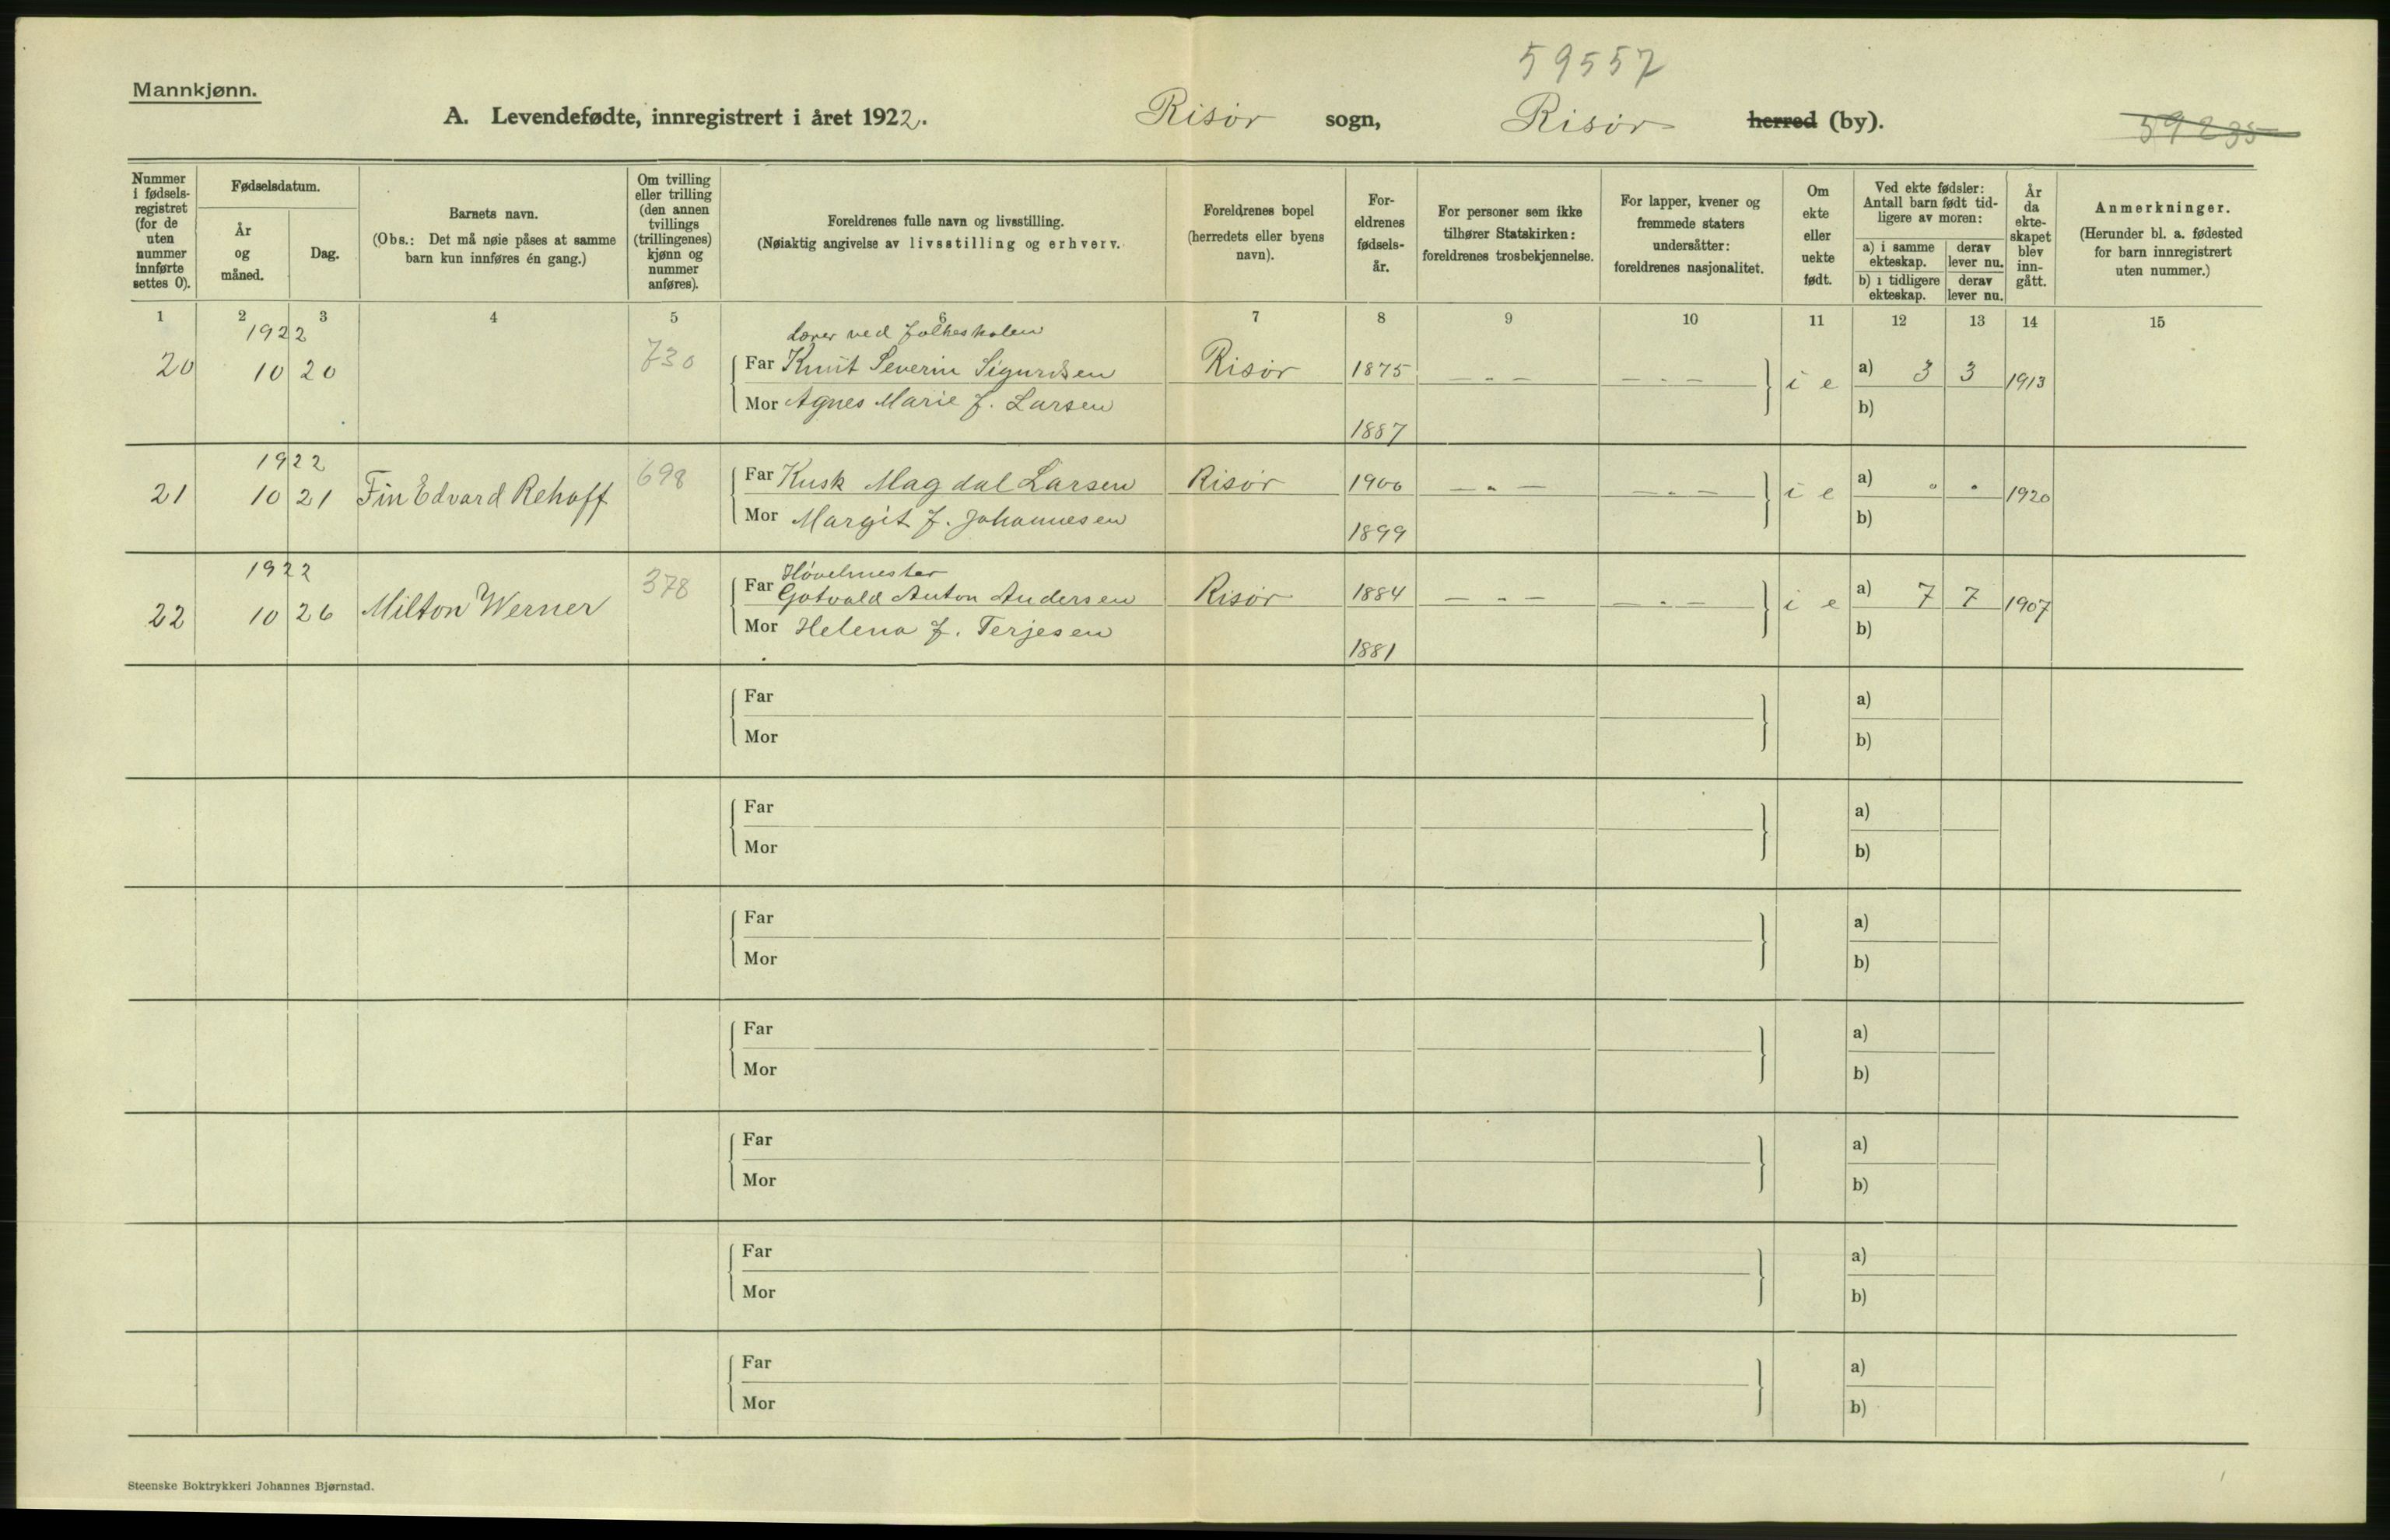 59557
Mannkjønn.
A. Levendefødte, innregistrert i året 1922. Risør sogn, Risør herred (by). 59235
Nummer i fødsels-registret (for de uten nummer innførte settes 0).
Fødselsdatum.
År og måned.
Dag.
Barnets navn.
(Obs.: Det må nøie påses at samme barn kun innføres én gang.)
Om tvilling eller trilling (den annen tvillings (trillingenes) kjønn og nummer anføres).
Foreldrenes fulle navn og livsstilling.
(Nøiaktig angivelse av livsstilling og erhverv.
Foreldrenes bopel (herredets eller byens navn).
For-eldrenes fødsels-år.
For personer som ikke tilhører Statskirken: foreldrenes trosbekjennelse.
For lapper, kvener og fremmede staters undersåtter: foreldrenes nasjonalitet.
Om ekte eller uekte født.
Ved ekte fødsler: Antall barn født tid-ligere av moren:
a) i samme ekteskap. derav lever nu.
b) i tidligere ekteskap. derav lever nu.
År da ekte-skapet blev inn-gått.
Anmerkninger.
(Herunder bl. a. fødested for barn innregistrert uten nummer.)
1 2 3 4 5 6 7 8 9 10 11 12 13 14 15
1922 Lærer ved folkeskolen
20 10 20 730 Far Knut Severin Sigurdsen Risør 1875 — „ — — „ — i e a) 3 3 1913
Mor Agnes Marie f. Larsen 1887 b)
1922
21 10 21 Fin Edvard Rehoff 698 Far Kusk Magdal Larsen Risør 1900 — „ — — „ — i e a) " " 1920
Mor Margit f. Johannesen 1899 b)
1922 Høvelmester
22 10 26 Milton Werner 378 Far Gotvald Anton Andersen Risør 1884 — „ — — „ — i e a) 7 7 1907
Mor Helena f. Terjesen 1881 b)
Far a)
Mor b)
Far a)
Mor b)
Far a)
Mor b)
Far a)
Mor b)
Far a)
Mor b)
Far a)
Mor b)
Far a)
Mor b)
Steenske Boktrykkeri Johannes Bjørnstad.